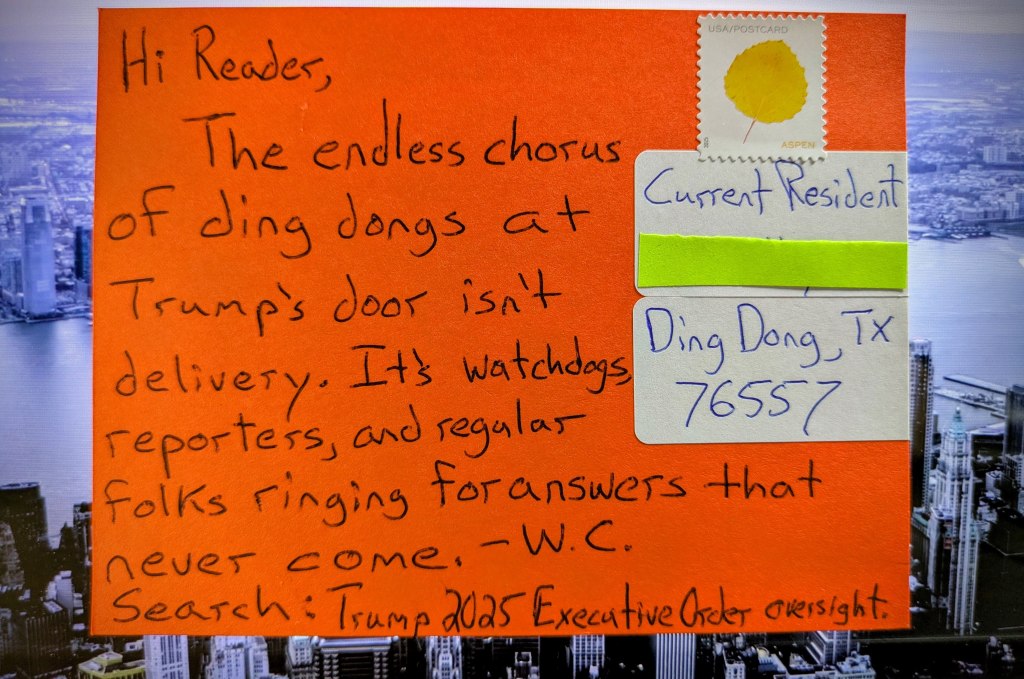 Hi Reader,
The endless chorus
of ding dongs at
Trump's door isn't
delivery. It's watchdogs,
reporters, and regular
folks ringing for answers that
never come. - W.C.
Search: Trump 2025 Executive Order oversight.
USA/POSTCARD
ASPEN
2025
Current Resident
Ding Dong, TX
76557